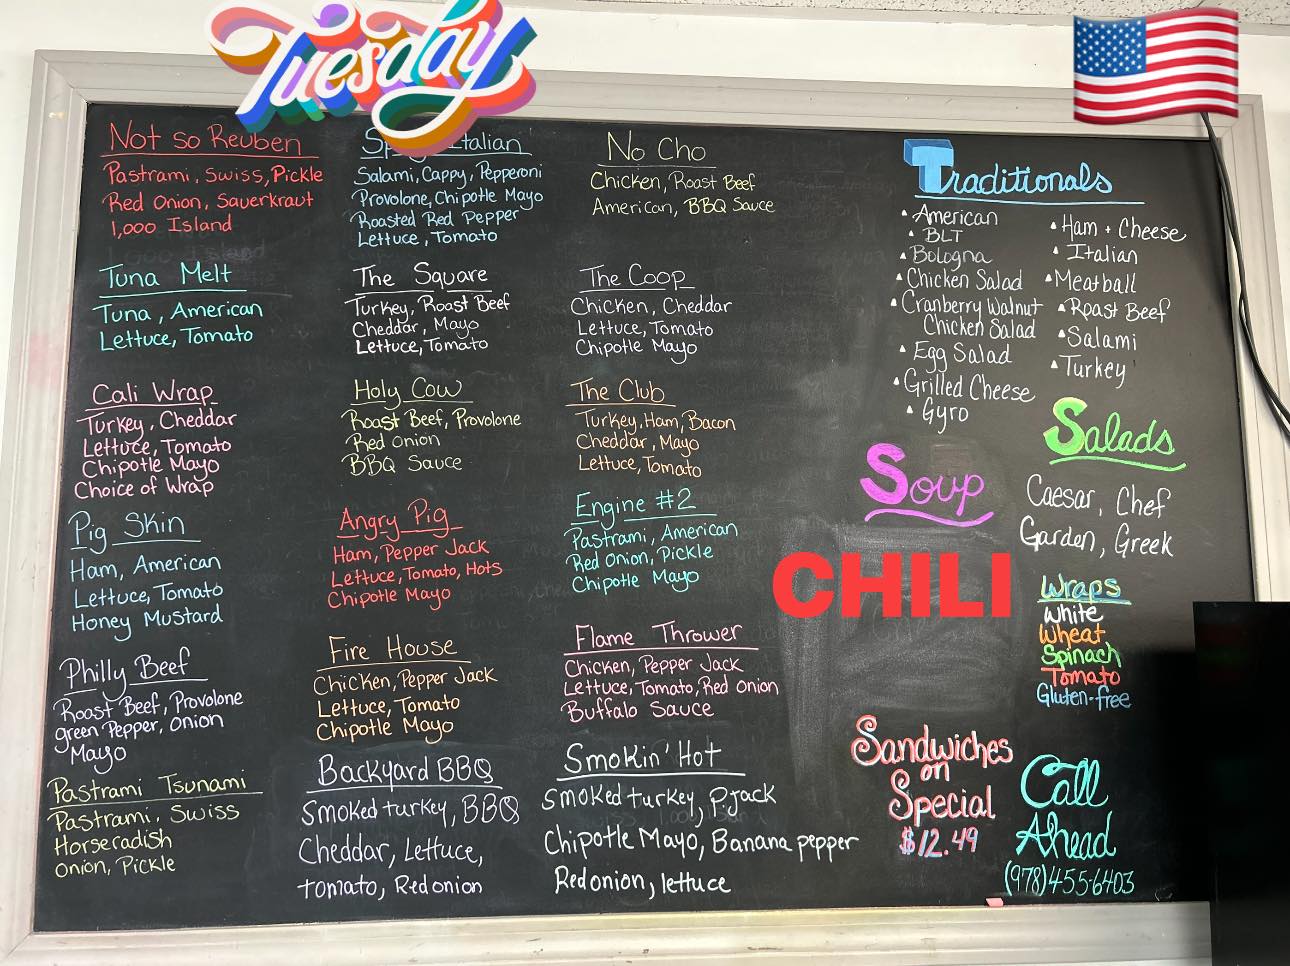 Tuesday
Not so Reuben
Pastrami, Swiss, Pickle
Red Onion, Sauerkraut
1,000 Island
Tuna Melt
Tuna, American
Lettuce, Tomato
Cali Wrap
Turkey, Cheddar
Lettuce, Tomato
Chipotle Mayo
Choice of Wrap
Pig Skin
Ham, American
Lettuce, Tomato
Honey Mustard
Philly Beef
Roast Beef, Provolone
green Pepper, Onion
Mayo
Pastrami Tsunami
Pastrami, Swiss
Horseradish
Onion, Pickle
Italian
Salami, Cappy, Pepperoni
Provolone, Chipotle Mayo
Roasted Red Pepper
Lettuce, Tomato
The Square
Turkey, Roast Beef
Cheddar, Mayo
Lettuce, Tomato
Holy Cow
Roast Beef, Provolone
Red Onion
BBQ Sauce
Angry Pig
Ham, Pepper Jack
Lettuce, Tomato, Hots
Chipotle Mayo
Fire House
Chicken, Pepper Jack
Lettuce, Tomato
Chipotle Mayo
Backyard BBQ
Smoked turkey, BBQ
Cheddar, Lettuce,
tomato, Red onion
No Cho
Chicken, Roast Beef
American, BBQ Sauce
The Coop
Chicken, Cheddar
Lettuce, Tomato
Chipotle Mayo
The Club
Turkey, Ham, Bacon
Cheddar, Mayo
Lettuce, Tomato
Engine #2
Pastrami, American
Red Onion, Pickle
Chipotle Mayo
Flame Thrower
Chicken, Pepper Jack
Lettuce, Tomato, Red Onion
Buffalo Sauce
Smokin' Hot
Smoked turkey, P.jack
Chipotle Mayo, Banana pepper
Red onion, lettuce
Traditionals
• American
• BLT
• Bologna
• Chicken Salad
• Cranberry Walnut
Chicken Salad
• Egg Salad
• Grilled Cheese
• Gyro
• Ham + Cheese
• Italian
• Meatball
• Roast Beef
• Salami
• Turkey
Soup
CHILI
Salads
Caesar, Chef
Garden, Greek
Wraps
White
Wheat
Spinach
Tomato
Gluten-free
Sandwiches
on
Special
$12.49
Call
Ahead
(978)455-6403